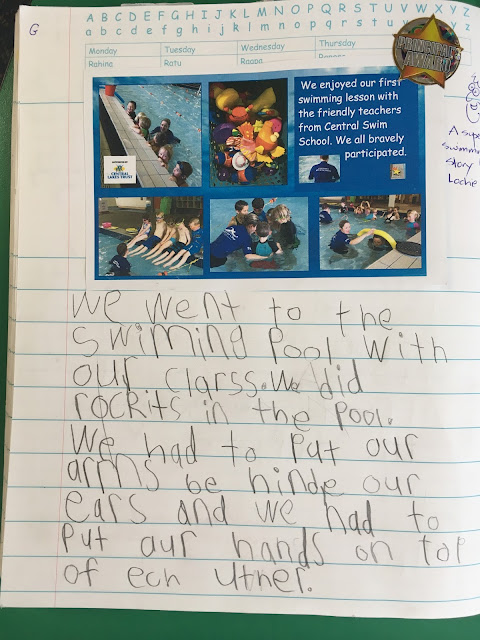 G
A B C D E F G H I J K L M N O P Q R S T U V W X Y Z
a b c d e f g h i j k l m n o p q r s t u v w x y z
PRINCIPAL'S AWARD
Monday Tuesday Wednesday Thursday
Rahina Ratu Raapa
We enjoyed our first
swimming lesson with
the friendly teachers
from Central Swim
School. We all bravely
participated.
CENTRAL
LAKES TRUST
A supe
swimmi
story
Loche
We went to the
swiming pool with
our clarss. We did
rockits in the pool.
We had to put our
arms be hinde our
ears and we had to
put our hands on top
of ech uther.